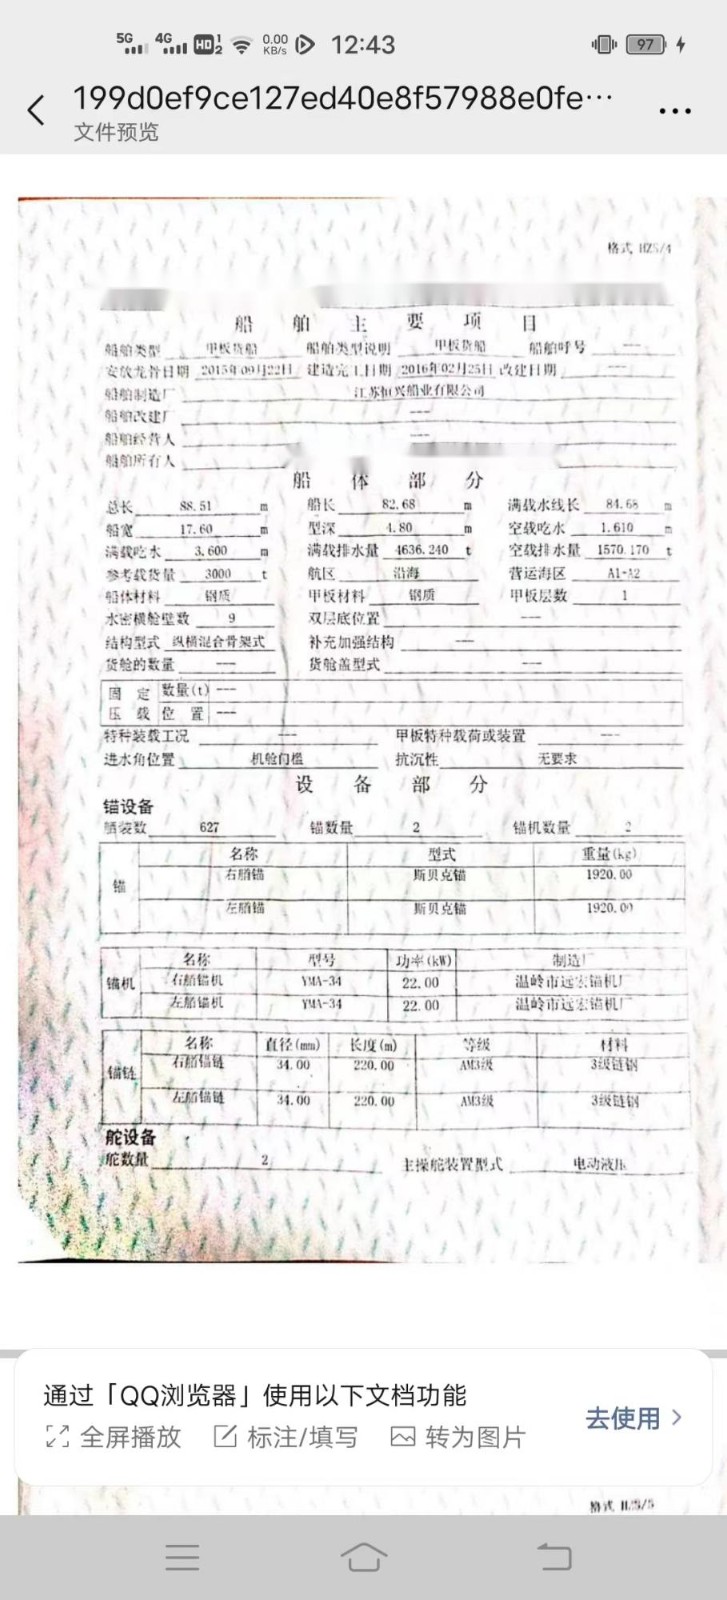 5G 4G HD 1 2 0.00 KB/s 12:43 97
199d0ef9ce127ed40e8f57988e0fe…
文件预览
格式 HZS/4
船舶主要项目
船舶类型 甲板货船 船舶类型说明 甲板货船 船舶呼号 ---
安放龙骨日期 2015年09月22日 建造完工日期 2016年02月25日 改建日期 ---
船舶制造厂 江苏恒兴船业有限公司
船舶改建厂 ---
船舶经营人 ---
船舶所有人
船体部分
总长 88.51 m 船长 82.68 m 满载水线长 84.68 m
船宽 17.60 m 型深 4.80 m 空载吃水 1.610 m
满载吃水 3.600 m 满载排水量 4636.240 t 空载排水量 1570.170 t
参考载货量 3000 t 航区 沿海 营运海区 A1-A2
船体材料 钢质 甲板材料 钢质 甲板层数 1
水密横舱壁数 9 双层底位置 ---
结构型式 纵横混合骨架式 补充加强结构 ---
货舱的数量 --- 货舱盖型式 ---
固定 数量(t) ---
压载 位置 ---
特种装载工况 --- 甲板特种载荷或装置 ---
进水角位置 机舱门槛 抗沉性 无要求
设备部分
锚设备
舾装数 627 锚数量 2 锚机数量 2
名称 型式 重量(kg)
锚
右艏锚 斯贝克锚 1920.00
左艏锚 斯贝克锚 1920.00
名称 型号 功率(kW) 制造厂
锚机 右艏锚机 YMA-34 22.00 温岭市远宏锚机厂
左艏锚机 YMA-34 22.00 温岭市远宏锚机厂
名称 直径(mm) 长度(m) 等级 材料
锚链
右艏锚链 34.00 220.00 AM3级 3级链钢
左艏锚链 34.00 220.00 AM3级 3级链钢
舵设备
舵数量 2 主操舵装置型式 电动液压
通过「QQ浏览器」使用以下文档功能
全屏播放 标注/填写 转为图片
去使用
格式 HZS/5